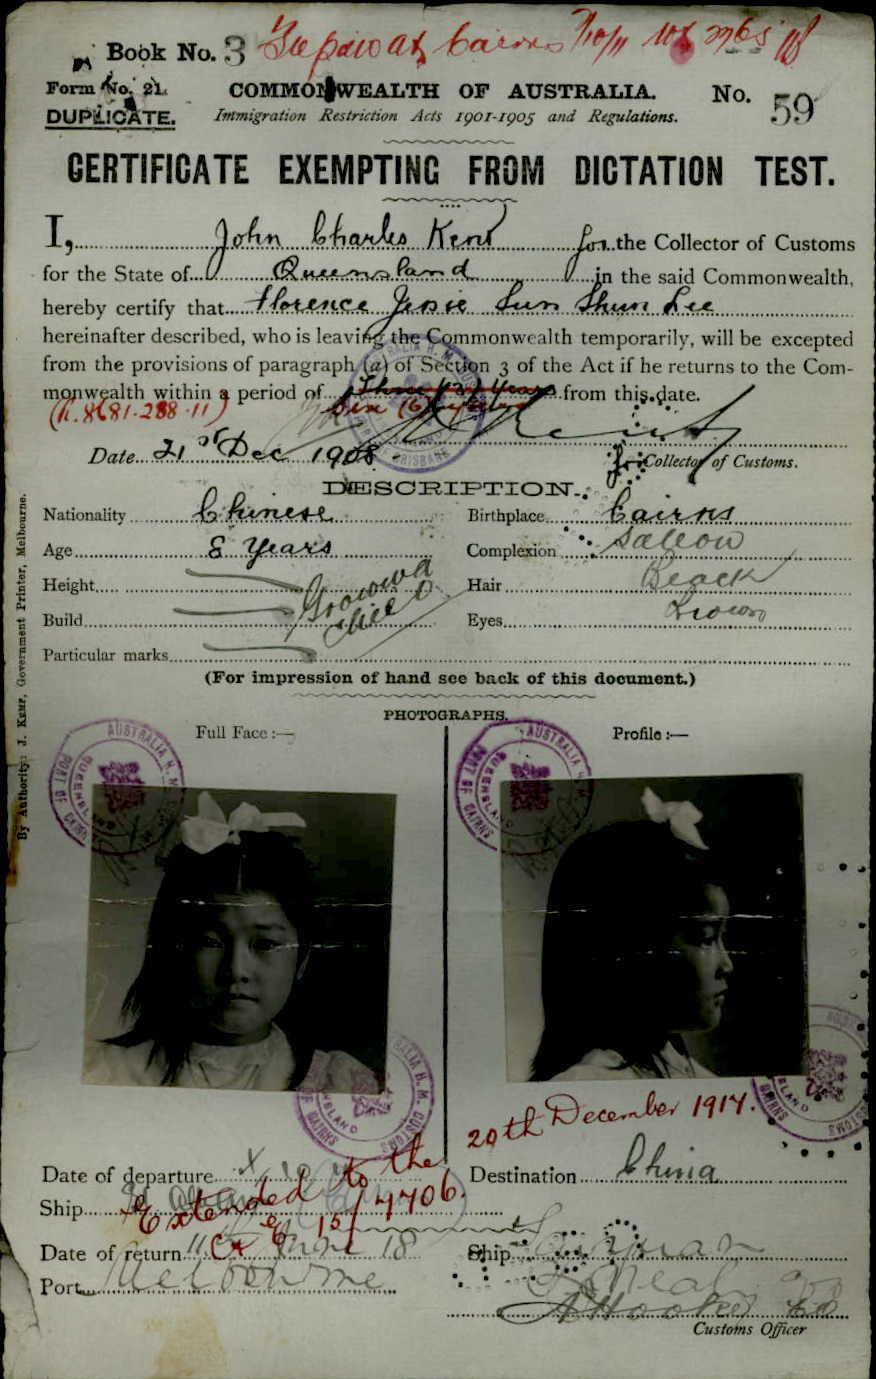 Book No. 3
Cairns
Form No. 21.
COMMONWEALTH OF AUSTRALIA. No. 59
DUPLICATE. Immigration Restriction Acts 1901-1905 and Regulations.
CERTIFICATE EXEMPTING FROM DICTATION TEST.
I, John Charles Kent for the Collector of Customs
for the State of Queensland in the said Commonwealth,
hereby certify that Florence Jessie Sun Shun Lee
hereinafter described, who is leaving the Commonwealth temporarily, will be excepted
from the provisions of paragraph (a) of Section 3 of the Act if he returns to the Com-
monwealth within a period of Three (3) years from this date.
Six (6) years
Date 21st Dec 1908 for Collector of Customs.
DESCRIPTION.
Nationality Chinese Birthplace Cairns
Age 8 Years Complexion Sallow
Height Hair Black
Build Eyes Brown
Particular marks
(For impression of hand see back of this document.)
PHOTOGRAPHS.
Full Face :— Profile :—
PORT OF CAIRNS QUEENSLAND AUSTRALIA H. M.
PORT OF CAIRNS QUEENSLAND AUSTRALIA H. M.
20th December 1917.
Date of departure Destination China
Extended to the
Ship
15/7706.
Date of return 11 June 18 Ship
Port Melbourne
Customs Officer
By Authority: J. KEMP, Government Printer, Melbourne.